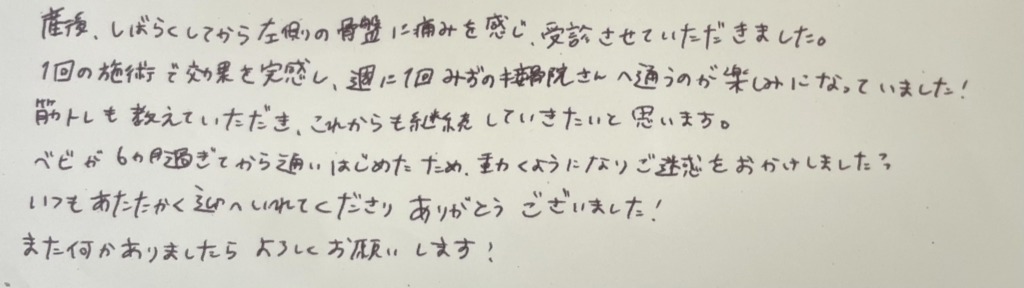 産後、しばらくしてから左側の骨盤に痛みを感じ、受診させていただきました。
1回の施術で効果を実感し、週に1回みずの接骨院さんへ通うのが楽しみになっていました!
筋トレも教えていただき、これからも継続していきたいと思います。
ベビが6カ月過ぎてから通いはじめたため、動くようになりご迷惑をおかけしました
いつもあたたかく迎へいれてくださり ありがとう ございました!
また何かありましたら よろしくお願いします!